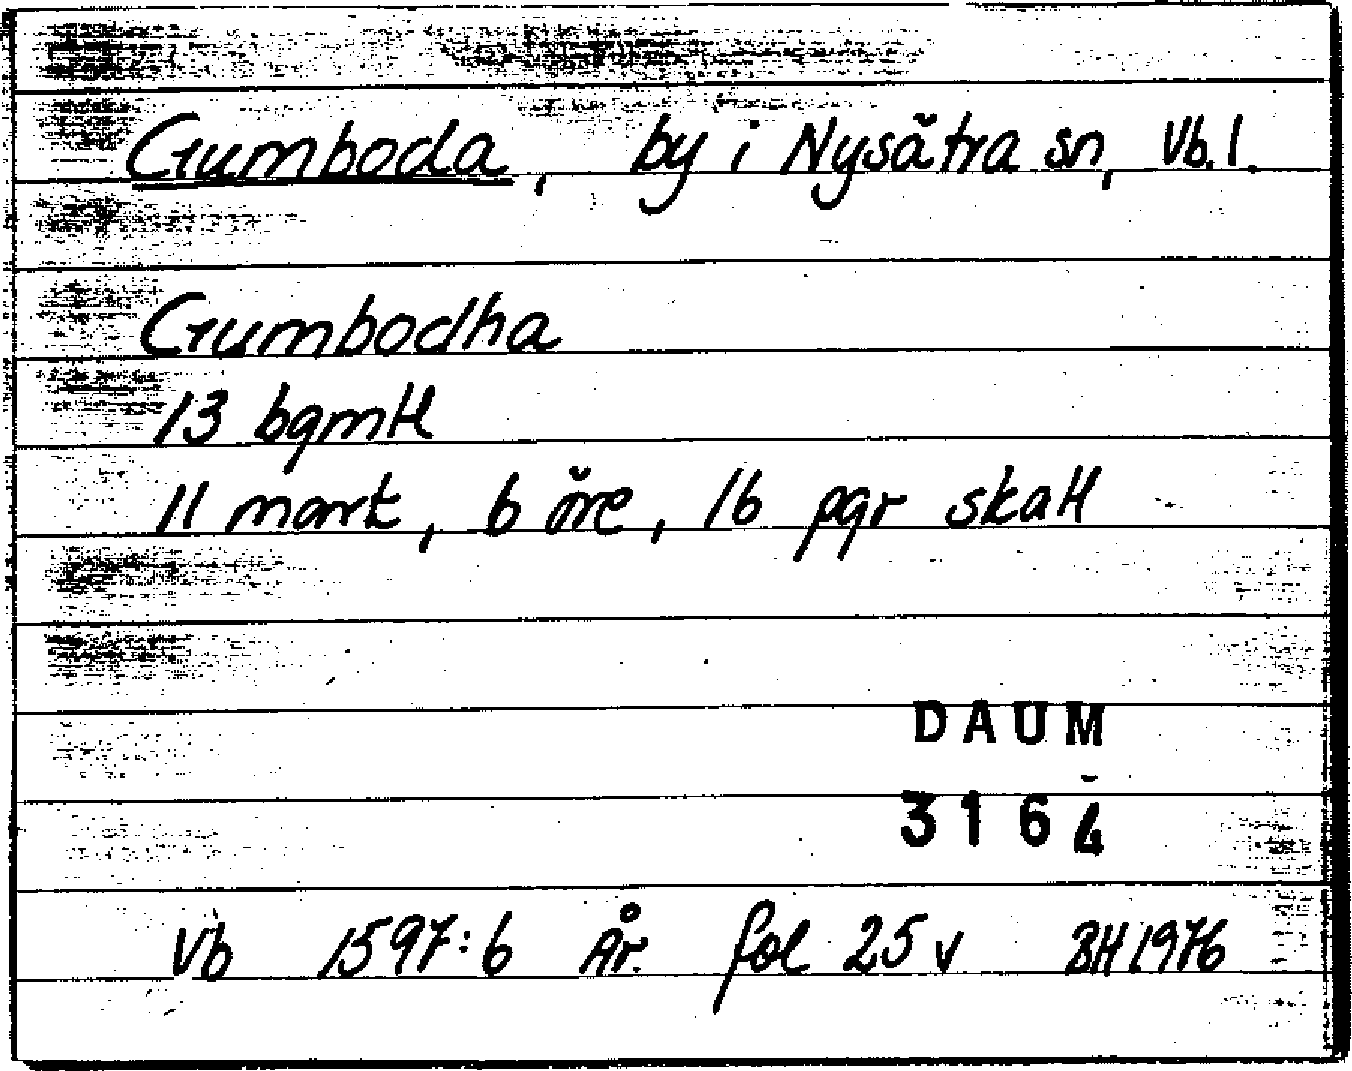 Gumboda, by i Nysätra sn, Vb. l.
Gumbodha
13 bgmtl
11 mark, 6 öre, 16 pgr skatt
DAUM
3164
Vb 1597:6 År. fol 25 v BH 1976